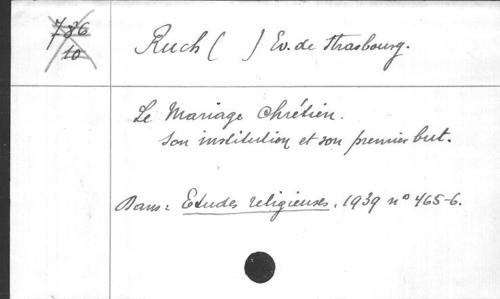 786
10
Ruch ( ) Ev. de Strasbourg.
Le Mariage Chrétien.
Son institution et son premier but.
Dans : Etudes religieuses, 1939 n° 465-6.